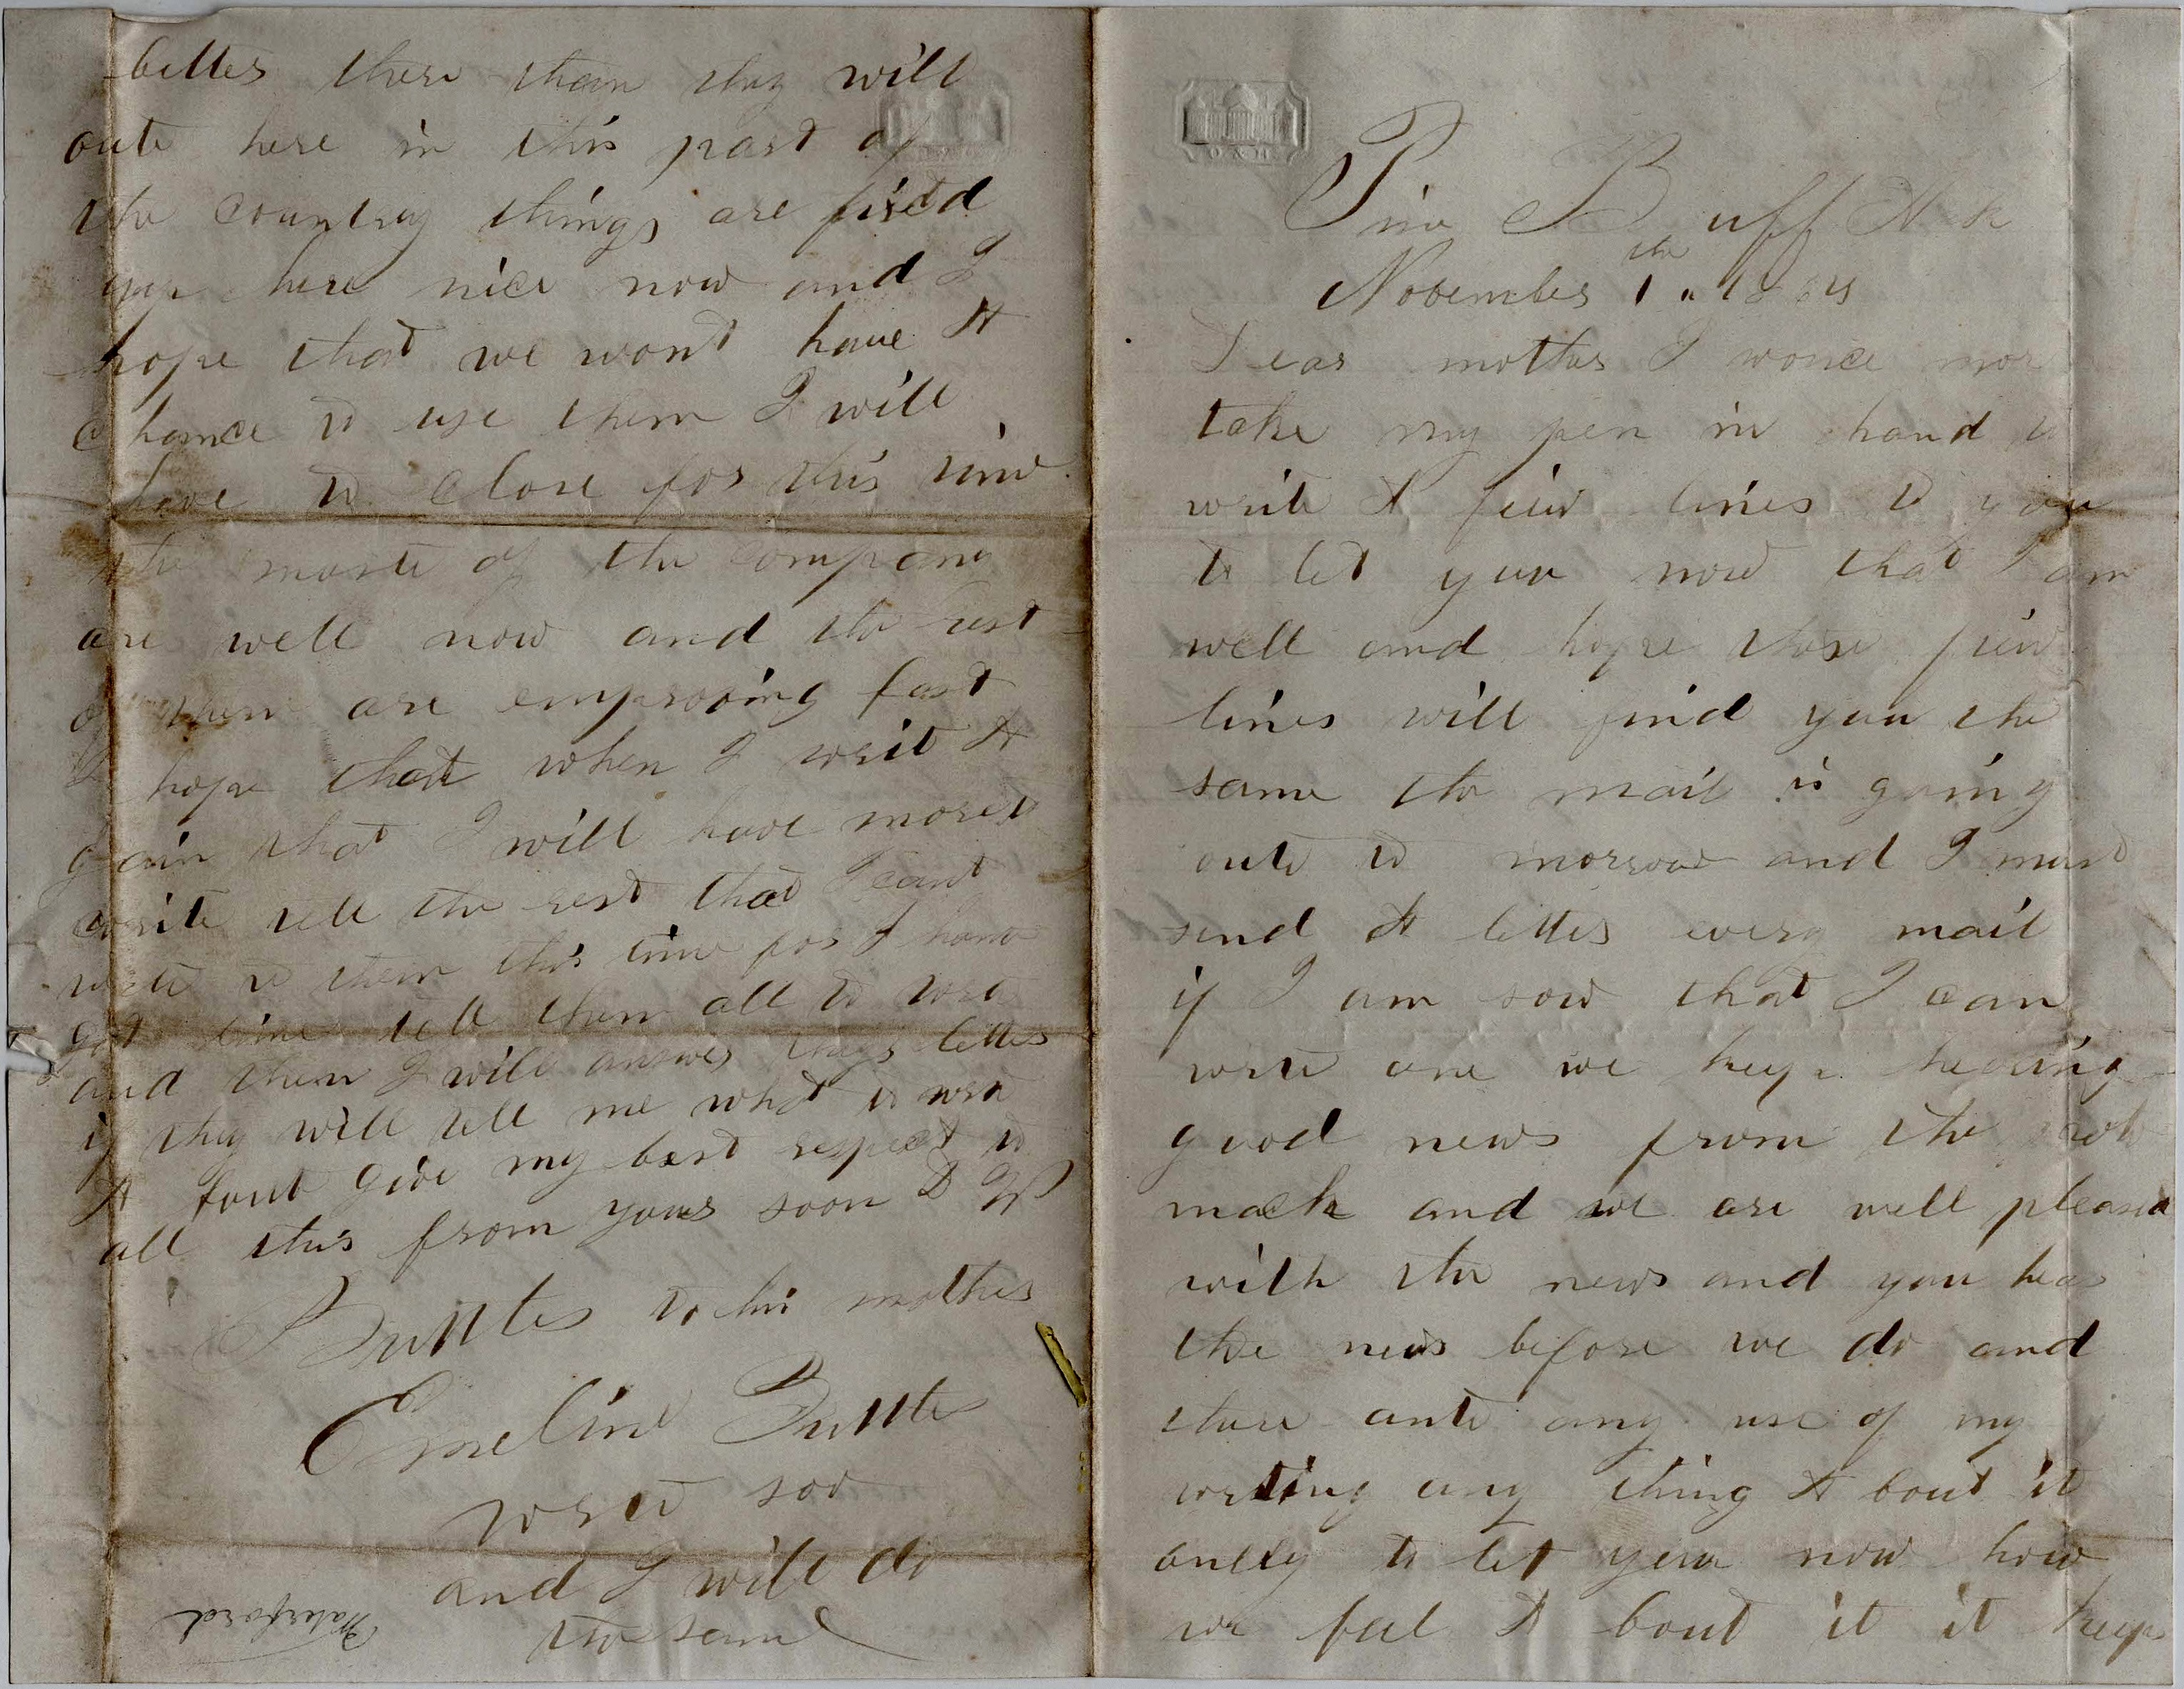 Pine B uff Ark
November 1 the 1864
Dear mother I wonce mor
take my pen in hand to
write A fiew lines to you
to let you now that I am
well and hope these fiew
lines will find you the
same the mail is going
oute to morrow and I must
send A letter every mail
if I am sow that I can
write one we keep hearing
good news from the
mack and we are well pleased
with the news and you hear
the news before we do and
there ante any use of my
writing any thing A bout it
onely to let you now how
we feel A bout it it keeps
better there than they will
oute here in this part of
the country things are fixed
up here nice now and I
hope that we wont have A
chance to use them I will
have to close for this time
the moste of the company
are well now and the rest
of them are emprooving fast
I hope that when I writ A
gain that I will have more to
write tell the rest that I cant
write to them this time for I hant
got time tell them all to write
and then I will answer theyr letter
if they will tell me what to write
A bout give my best respect to
all this from your soon D W
Butttes to his mother
Emeline Buttte
write soo
and I will do
the same
Waterford